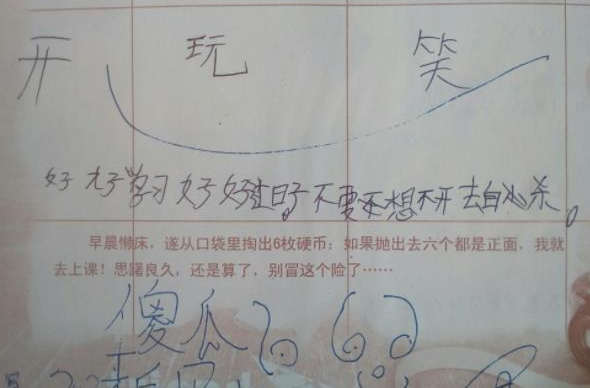 开玩笑
好好学习好好过日子不要不想不开去自杀。
早晨懒床，遂从口袋里掏出6枚硬币：如果抛出去六个都是正面，我就
去上课！思躇良久，还是算了，别冒这个险了……
傻瓜